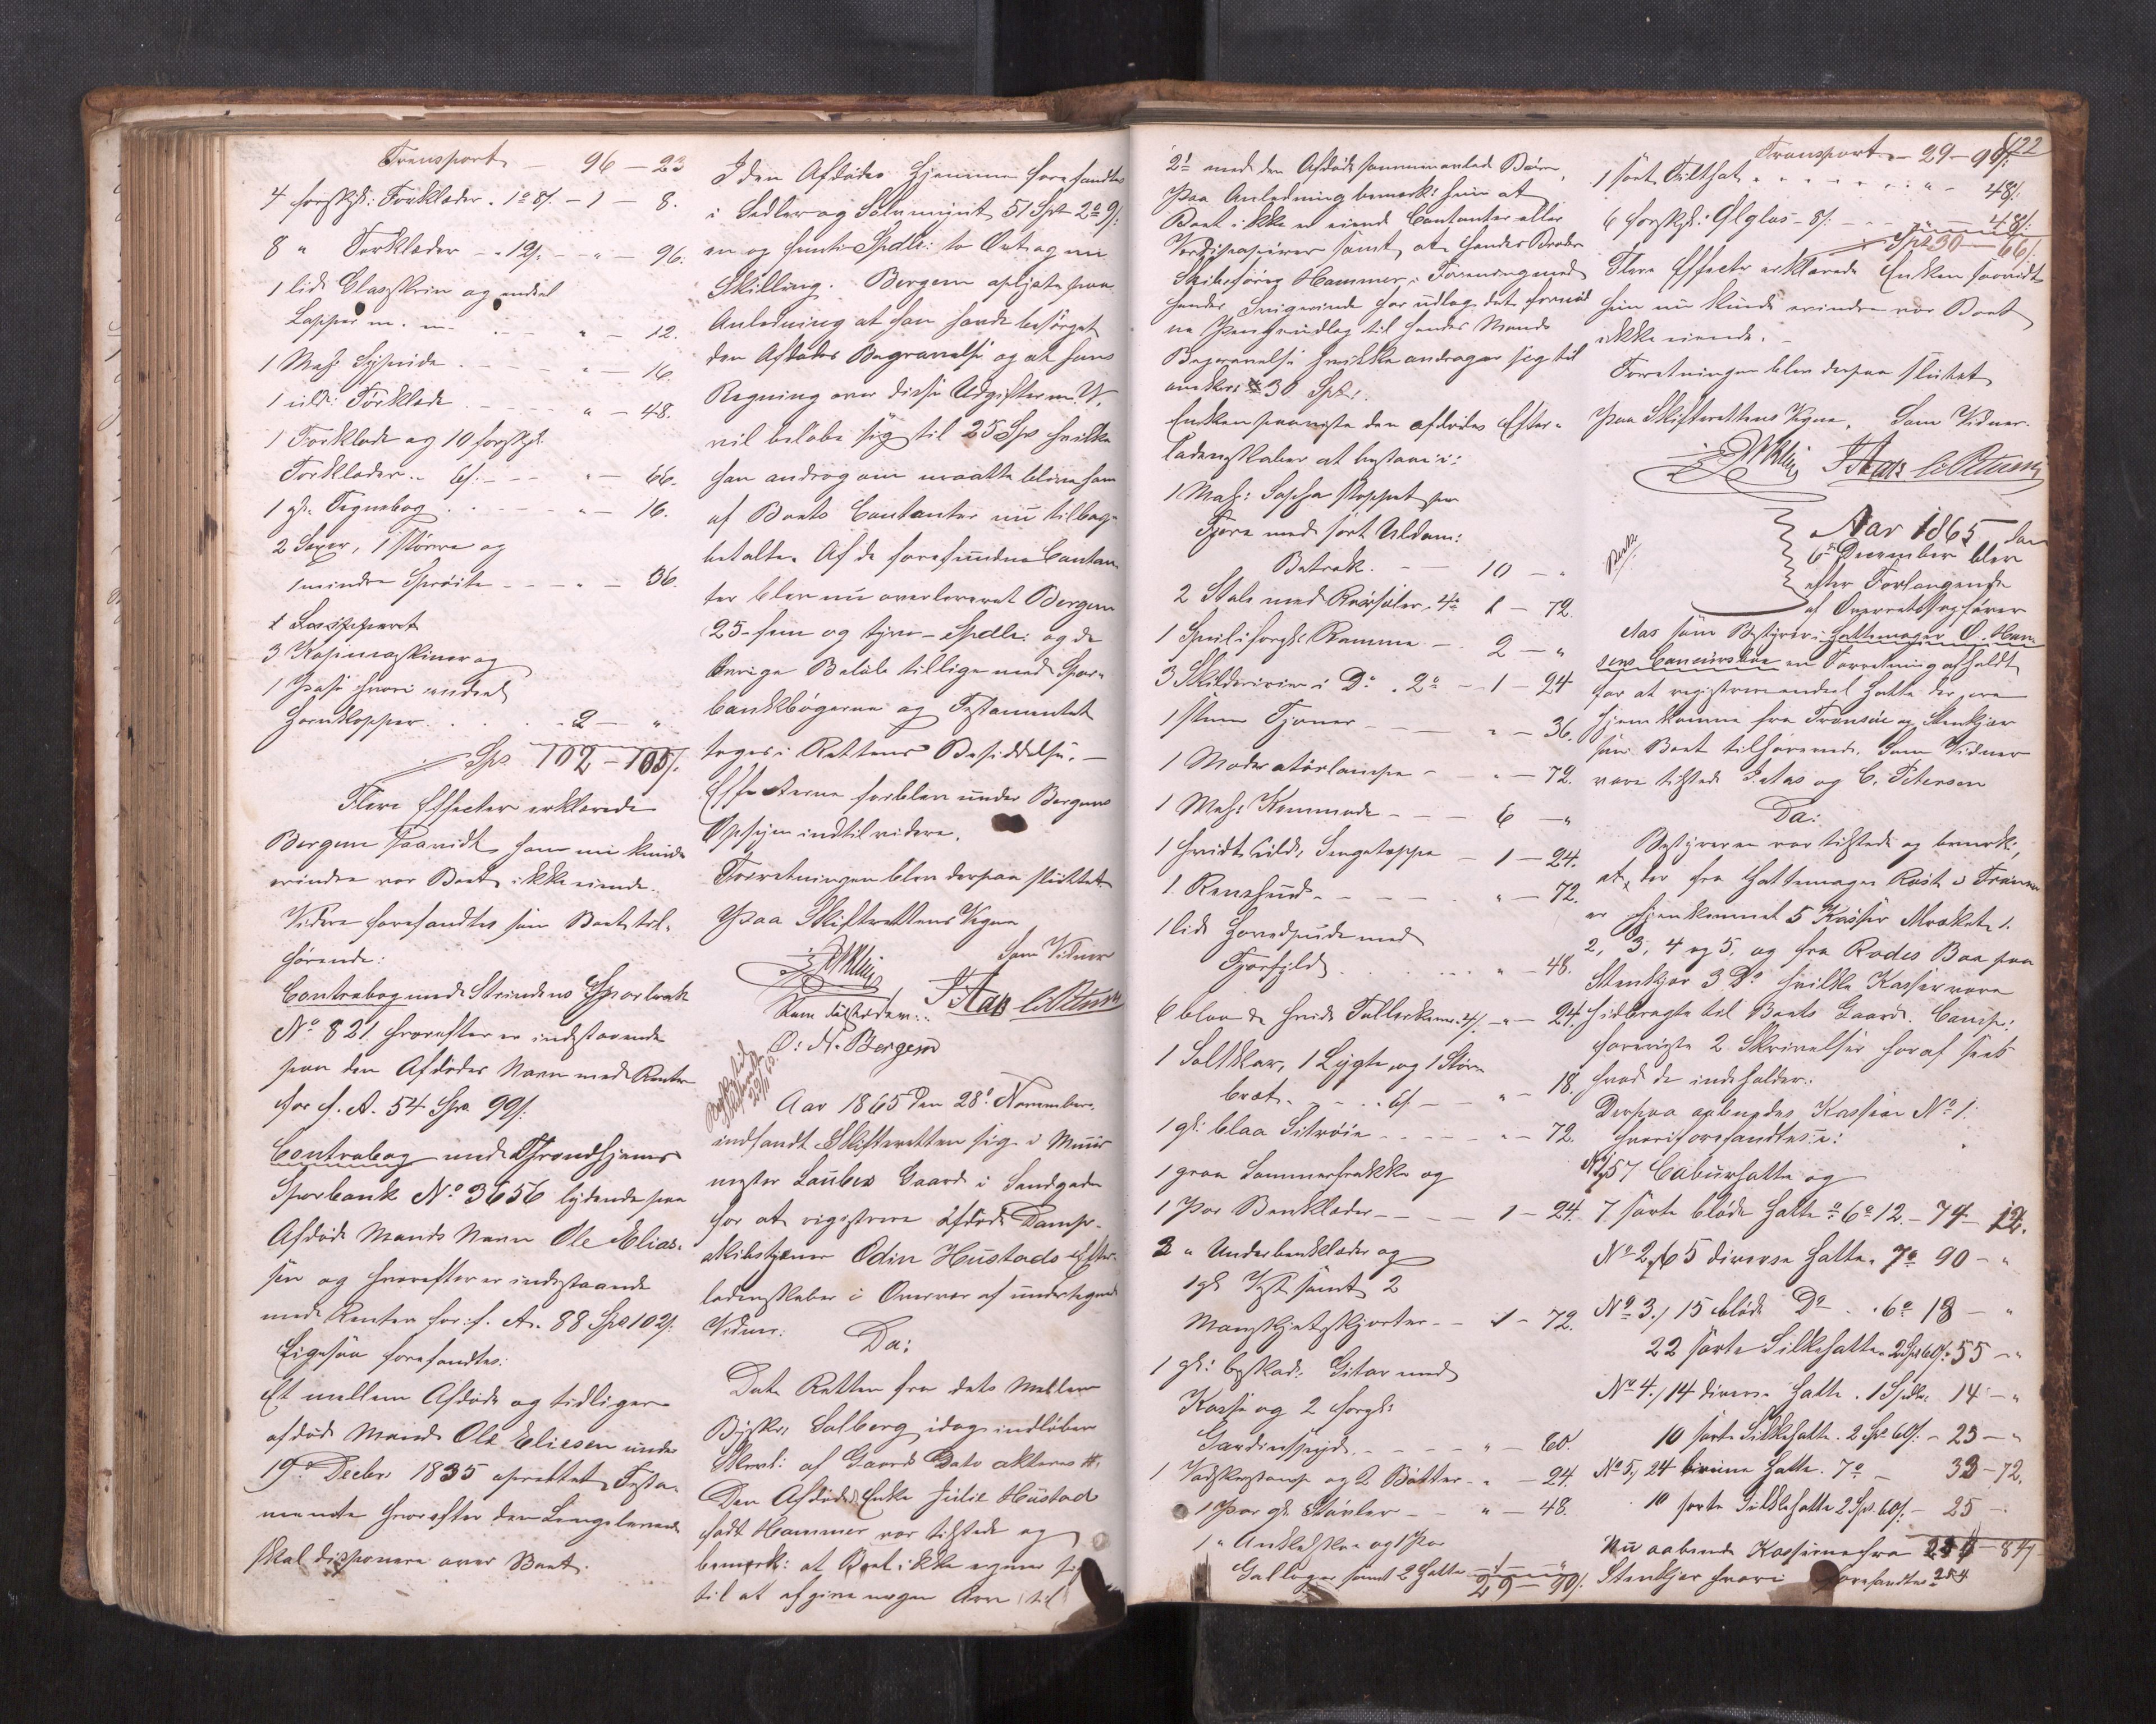 Transport - 96 - 23
4 forskjl: Forklæder. 1 o 8/. - 1 - 8.
8 " Torklæder - 12/. - " - 96.
1 lidt Glasskrin og endel
Lapper m. m. - " - 12.
1 Mah: Sypude - " - 16.
1 uldt: Forklæde - " - 48.
1 Forklæde og 10 forskjl:
Torklæder. 6/. - " - 66.
1 gl: Tegnebog - " - 16.
2 Saxer, 1 større og
1 mindre Sprøite - " - 36.
3 Kafemaskiner og
1 hvori endel
2 - "
Spd. 102 - 105/.
Flere Effecter erklærede
Bergem saavidt han nu kunde
erindre var Boet ikke eiende.
Videre forefandtes som Boet til-
hørende:
Contrabog med Strindens Sparebank
No 821. hvorefter er indestaaende
paa den Afdødes Navn med Renter
for f. A. 54 Spd. 99/.
Contrabog med Throndhjems
Sparbank No 3656 lydende paa
Afdøde Mands Navn Ole Elias-
sen og hvorefter er indestaaende
med Renter for f. A. 88 Spd 102/.
Ligesaa forefandtes:
Et mellem Afdøde og tidligere
afdøde Mand Ole Eliesen under
19de Decbr 1835 oprettet Testa-
mente hvorefter den Længstlevende
skal disponere over Boet.
I den Afdødes Hjemme forefandtes
i Sedler og Sølvmynt 51 Spd 2 o 9/.
en og femti Spdlr: to Ort og ni
Skilling. Bergem oplyste paa
Anledning at han havde besørget
den Afdødes Begravelse og at hans
Regning over disse Udgifter m. V.
vil beløbe sig til 25 Spd hvilke
han androg om maatte blive ham
af Boets Contanter nu tilbage-
betalte. Af de forefundne Contan-
ter blev nu overleveret Bergem
25 - fem og tyve - Spdlr: og de
øvrige Beløb tillige med Spar-
bankbøgerne og Testamentet
toges i Rettens Besiddelse. -
Effecterne forblev under Bergems
Opsyn indtil videre.
Forretningen blev derpaa sluttet
Paa Skifterettens Vegne
Som Vidner
J Aas C. Petersen
Som tilstede:
O: A. Bergem
Aar 1865 den 28de November.
indfandt Skifteretten sig i Muur-
mester Laubes Gaard i Sandgaden
for at registrere afdøde Damp-
skibstjener Odin Hustads Efter-
ladenskaber i Overvær af undertegnede
Vidner:
Da:
Satte Retten fra dets Mellem
Solberg idag indløbne
Skrvl: af Gaards Dato akteres #.
Den Afdødes Enke Julie Hustad
født Hammer var tilstede og
bemærk: at Boet ikke egner sig
til at afgive nogen Arv til
122
2de med den Afdøde sammenavlede Børn.
Paa Anledning bemærk: hun at
Boet ikke er eiende Contanter eller
Værdipapirer samt at hendes Broder
Skibsfører Hammer i Forening med
hendes Svigerinde har udlagt det fornød-
ne Pengeudlæg til hendes Mands
Begravelse hvilke andrager sig til
omtker: 30 Spd:.
Enken paaviste den afdødes Efter-
ladenskaber at bestaae i:
1 Mah: Sopha stoppet paa
Fjære med sort Uldam:
Betræk. - 10 - "
2 Stole med Rørsæder. 4 o 1 - 72.
1 Speil i forgl: Ramme - 2 - "
3 Skilderier i Do. 2 o - 1 - 24
- " - 36.
1 Moderatørlampe - " - 72.
1 Mah: Kommode - 6 - "
1 hvidt uldt: Sengetæppe - 1 - 24.
1. Renshud - " - 72.
1 lidt Hovedpude med
Fjærfyld - " - 48.
6 blaa de hvide Tallerkener 4/. - " - 24.
1 Saltkar, 1 Lygte, og 1
bræt. 6/. - " - 18.
1 gl: blaa Sitrøie - " - 72.
1 graa Sommerfrakke og
1 Par Benklæder - 1 - 24.
2 " Underbenklæder og
1 gl Vest samt 2
Mansskjortskjorter - 1 - 72.
1 gl: beskad: Gitar med
Kasse og 2 forgl:
Gardinspyd - " - 60.
1 og 2 Bøtter - " - 24.
1 Par gl. Støvler - " - 48.
1 " Ankelsko og 1 Par
Galloger samt 2 Hatte 1 - "
29 - 90/.
Transport - 29 - 90/.
1 sort Filthat - " - 48/.
6 forskjl: Ølglas - 8/. - " 48/.
Spd 30 - 66/.
Flere Effecter erklærede Enken saavidt
hun nu kunde erindre var Boet
ikke eiende.
Forretningen blev derpaa sluttet
Paa Skifterettens Vegne. Som Vidner.
J Aas C. Petersen
Aar 1865 den
6te December blev
efter Forlangende
af Overretssagfører
Aas som Bestyrer i Hattemager O. Han-
sens Concursbo en Forretning afholdt
for at registrere endeel Hatte der ere
hjemkomne fra Tromsøe og Stenkjær
som Boet tilhørende. Som Vidner
vare tilstede J. Aas og C. Petersen
Da:
Bestyreren var tilstede og bemærk:,
at, der fra Hattemager Rust i Tromsø
er hjemkommet 5 Kasser Mærket 1.
2, 3, 4 og 5, og fra Rodes Bo paa
Stenkjær 3 Do hvilke Kasser vare
hidbragte til Boets Gaard. Comp:
foreviste 2 Skrivelser hvoraf sees
hvad de indeholder.
Derpaa aabnedes Kassen No 1.
hvori forefandtes:
No 1./ 57 Caburhatte og
7 sorte bløde Hatte 6 o 12. - 74 - 12.
No 2./ 65 diverse Hatte. 7 o 90 - "
No 3./ 15 bløde Do. 6 o 18 - "
22 sorte Silkehatte. 2 Spd 60/. 55 - "
No 4./ 14 diverse Hatte. 1 Spdlr. 14 - "
10 sorte Silkehatte. 2 Spd 60/. - 25 - "
No 5./ 24 brune Hatte. 7 o - 33 - 72.
10 sorte Silkehatte 2 Spd 60/. - 25 -
Nu aabnede Kasserne fra
Stenkjær hvori forefandtes